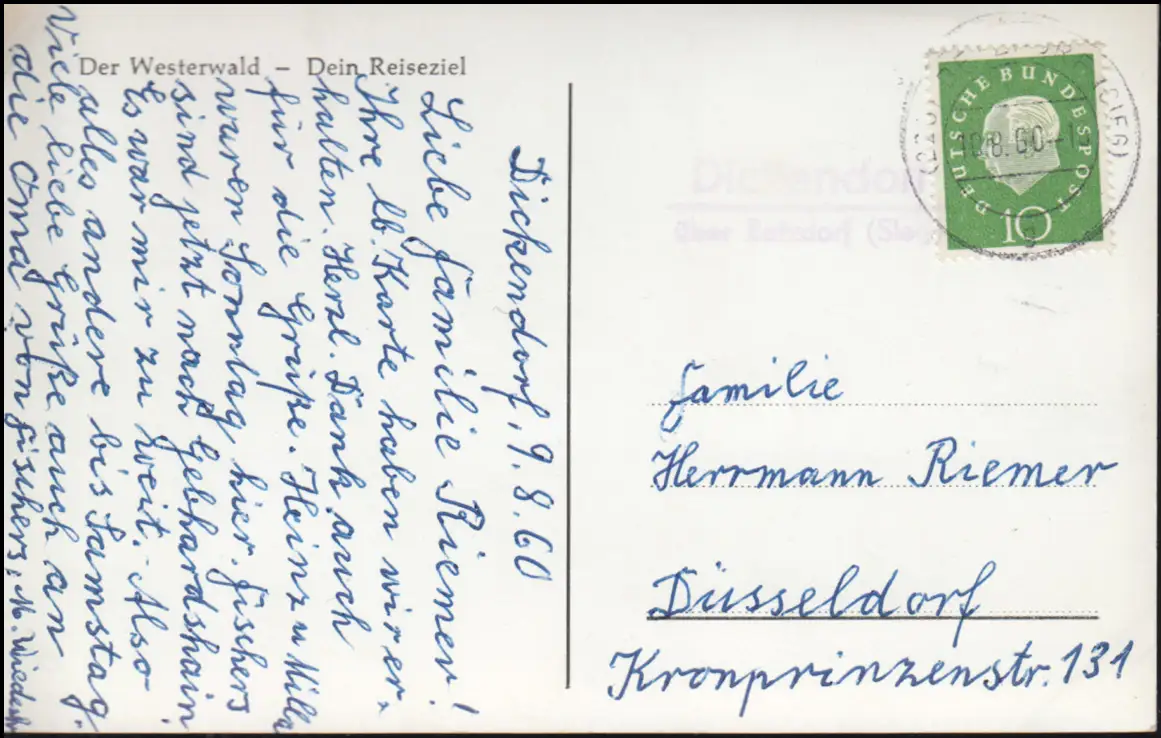 Der Westerwald – Dein Reiseziel
Dickendorf, 9.8.60
Liebe Familie Riemer!
Ihre lb. Karte haben wir er-
halten. Herzl. Dank auch
für die Grüße. Heinz u Milla
waren Sonntag hier. Fischers
sind jetzt nach Gebhardshain.
Es war mir zu weit. Also
alles andere bis Samstag.
Viele liebe Grüße auch an
die Oma von Fischers, M.
DEUTSCHE BUNDESPOST
10
10.8.60
(SIEG)
Dickendorf
über Betzdorf (Sieg)
Familie
Herrmann Riemer
Düsseldorf
Kronprinzenstr. 131